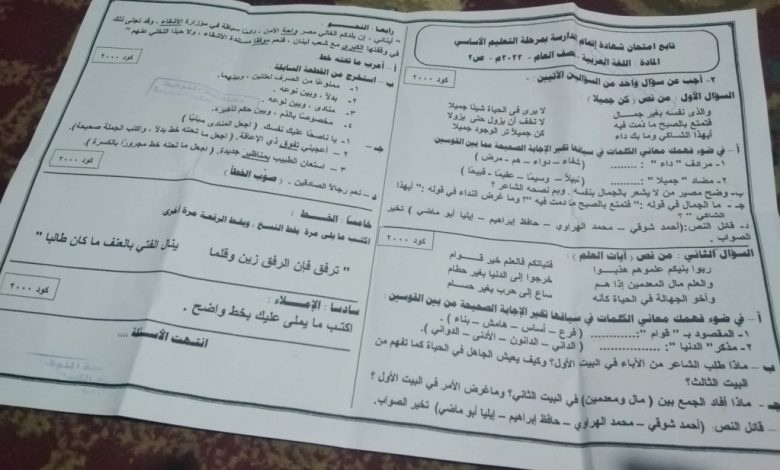 تابع امتحان شهادة إتمام الدراسة بمرحلة التعليم الأساسي
المادة : اللغة العربية - نصف العام - ٢٠٢٣م - ص٢
٣- أجب عن سؤال واحد من السؤالين الآتيين :
كود ٢٠٠٠
السؤال الأول : من نص ( كن جميلا ) :
والذي نفسه بغير جمال
لا يرى في الحياة شيئا جميلا
فتمتع بالصبح ما دمت فيه
لا تخف أن يزول حتى يزولا
أيهذا الشاكي وما بك داء
كن جميلاً تر الوجود جميلا
أ – في ضوء فهمك معاني الكلمات في سياقها تخير الإجابة الصحيحة مما بين القوسين
١- مرادف " داء " : .......... ( شفاء – دواء – هم – مرض )
٢- مضاد " جميلا " : .......... ( نبيلاً – وسيمًا – عقيمًا - قبيحًا )
ب- وضح مصير من لا يشعر بالجمال بنفسه . وبم نصحه الشاعر ؟
جـ - ما الجمال في قوله :" فتمتع بالصبح ما دمت فيه "؟ وما غرض النداء في قوله :" أيهذا
الشاكي " ؟
د- قائل النص :(أحمد شوقي – محمد الهراوي – حافظ إبراهيم – إيليا أبو ماضي ) تخير
الصواب .
السؤال الثاني : من نص ( آيات العلم ) :
كود ٢٠٠٠
ربوا بنيكم علموهم هذبوا
فتياتكم فالعلم خير قوام
والعلم مال المعدمين إذا هم
خرجوا إلى الدنيا بغير حطام
وأخو الجهالة في الحياة كأنه
ساع إلى حرب بغير حسام
أ – في ضوء فهمك معاني الكلمات في سياقها تخير الإجابة الصحيحة من بين القوسين :
١- المقصود بـ " قوام " : .......... ( فرع – أساس – هامش – بناء ) .
٢- مذكر " الدنيا " : .......... ( الداني – الدنون – الأدنى – الدواني ) .
ب – ماذا طلب الشاعر من الآباء في البيت الأول؟ وكيف يعيش الجاهل في الحياة كما تفهم من
البيت الثالث؟
جـ - ماذا أفاد الجمع بين ( مال ومعدمين) في البيت الثاني؟ وما غرض الأمر في البيت الأول ؟
– قائل النص: (أحمد شوقي – محمد الهراوي – حافظ إبراهيم – إيليا أبو ماضي) تخير الصواب.
رابعا النحـــو
" أبنائي ، إن بلدكم الغالي مصر واحة الأمن ، دومًا سباقة في مؤازرة الأشقاء ، وقد تجلى ذلك
في وقفتها الكبرى مع شعب لبنان ، فنعم موقفا مساندة الأشقاء ، ولا حبذا التخلي عنهم "
أ – أعرب ما تحته خط
ب – استخرج من القطعة السابقة :
كود ٢٠٠٠
١- ممنوعًا من الصرف لعلتين ، وبينهما .
٢- بدلاً ، وبين نوعه .
٣- منادى ، وبين نوعه .
٤- مخصوصًا بالذم ، وبين حكم تأخيره .
جـ - ١- يا ناصحا عليك نفسك ( اجعل المنادى مبنيًا )
٢- أعجبني تفوق ذي الإعاقة . ( اجعل ما تحته خط بدلاً ، واكتب الجملة صحيحة).
٣- استعان الطبيب بمناظير جديدة. ( اجعل ما تحته خط مجرورًا بالكسرة ).
د – نعم رجالاً الصادقين . ( صوب الخطأ )
كود ٢٠٠٠
خامسًا : الخـــط :
اكتب ما يلي مرة بخط النسخ ، وبخط الرقعة مرة أخرى:
" ترفق فإن الرفق زين وقلما
ينال الفتي بالعنف ما كان طالبا "
كود ٢٠٠٠
سادسا : الإمــلاء :
اكتب ما يملى عليك بخط واضح .
انتهت الأسئلة ....